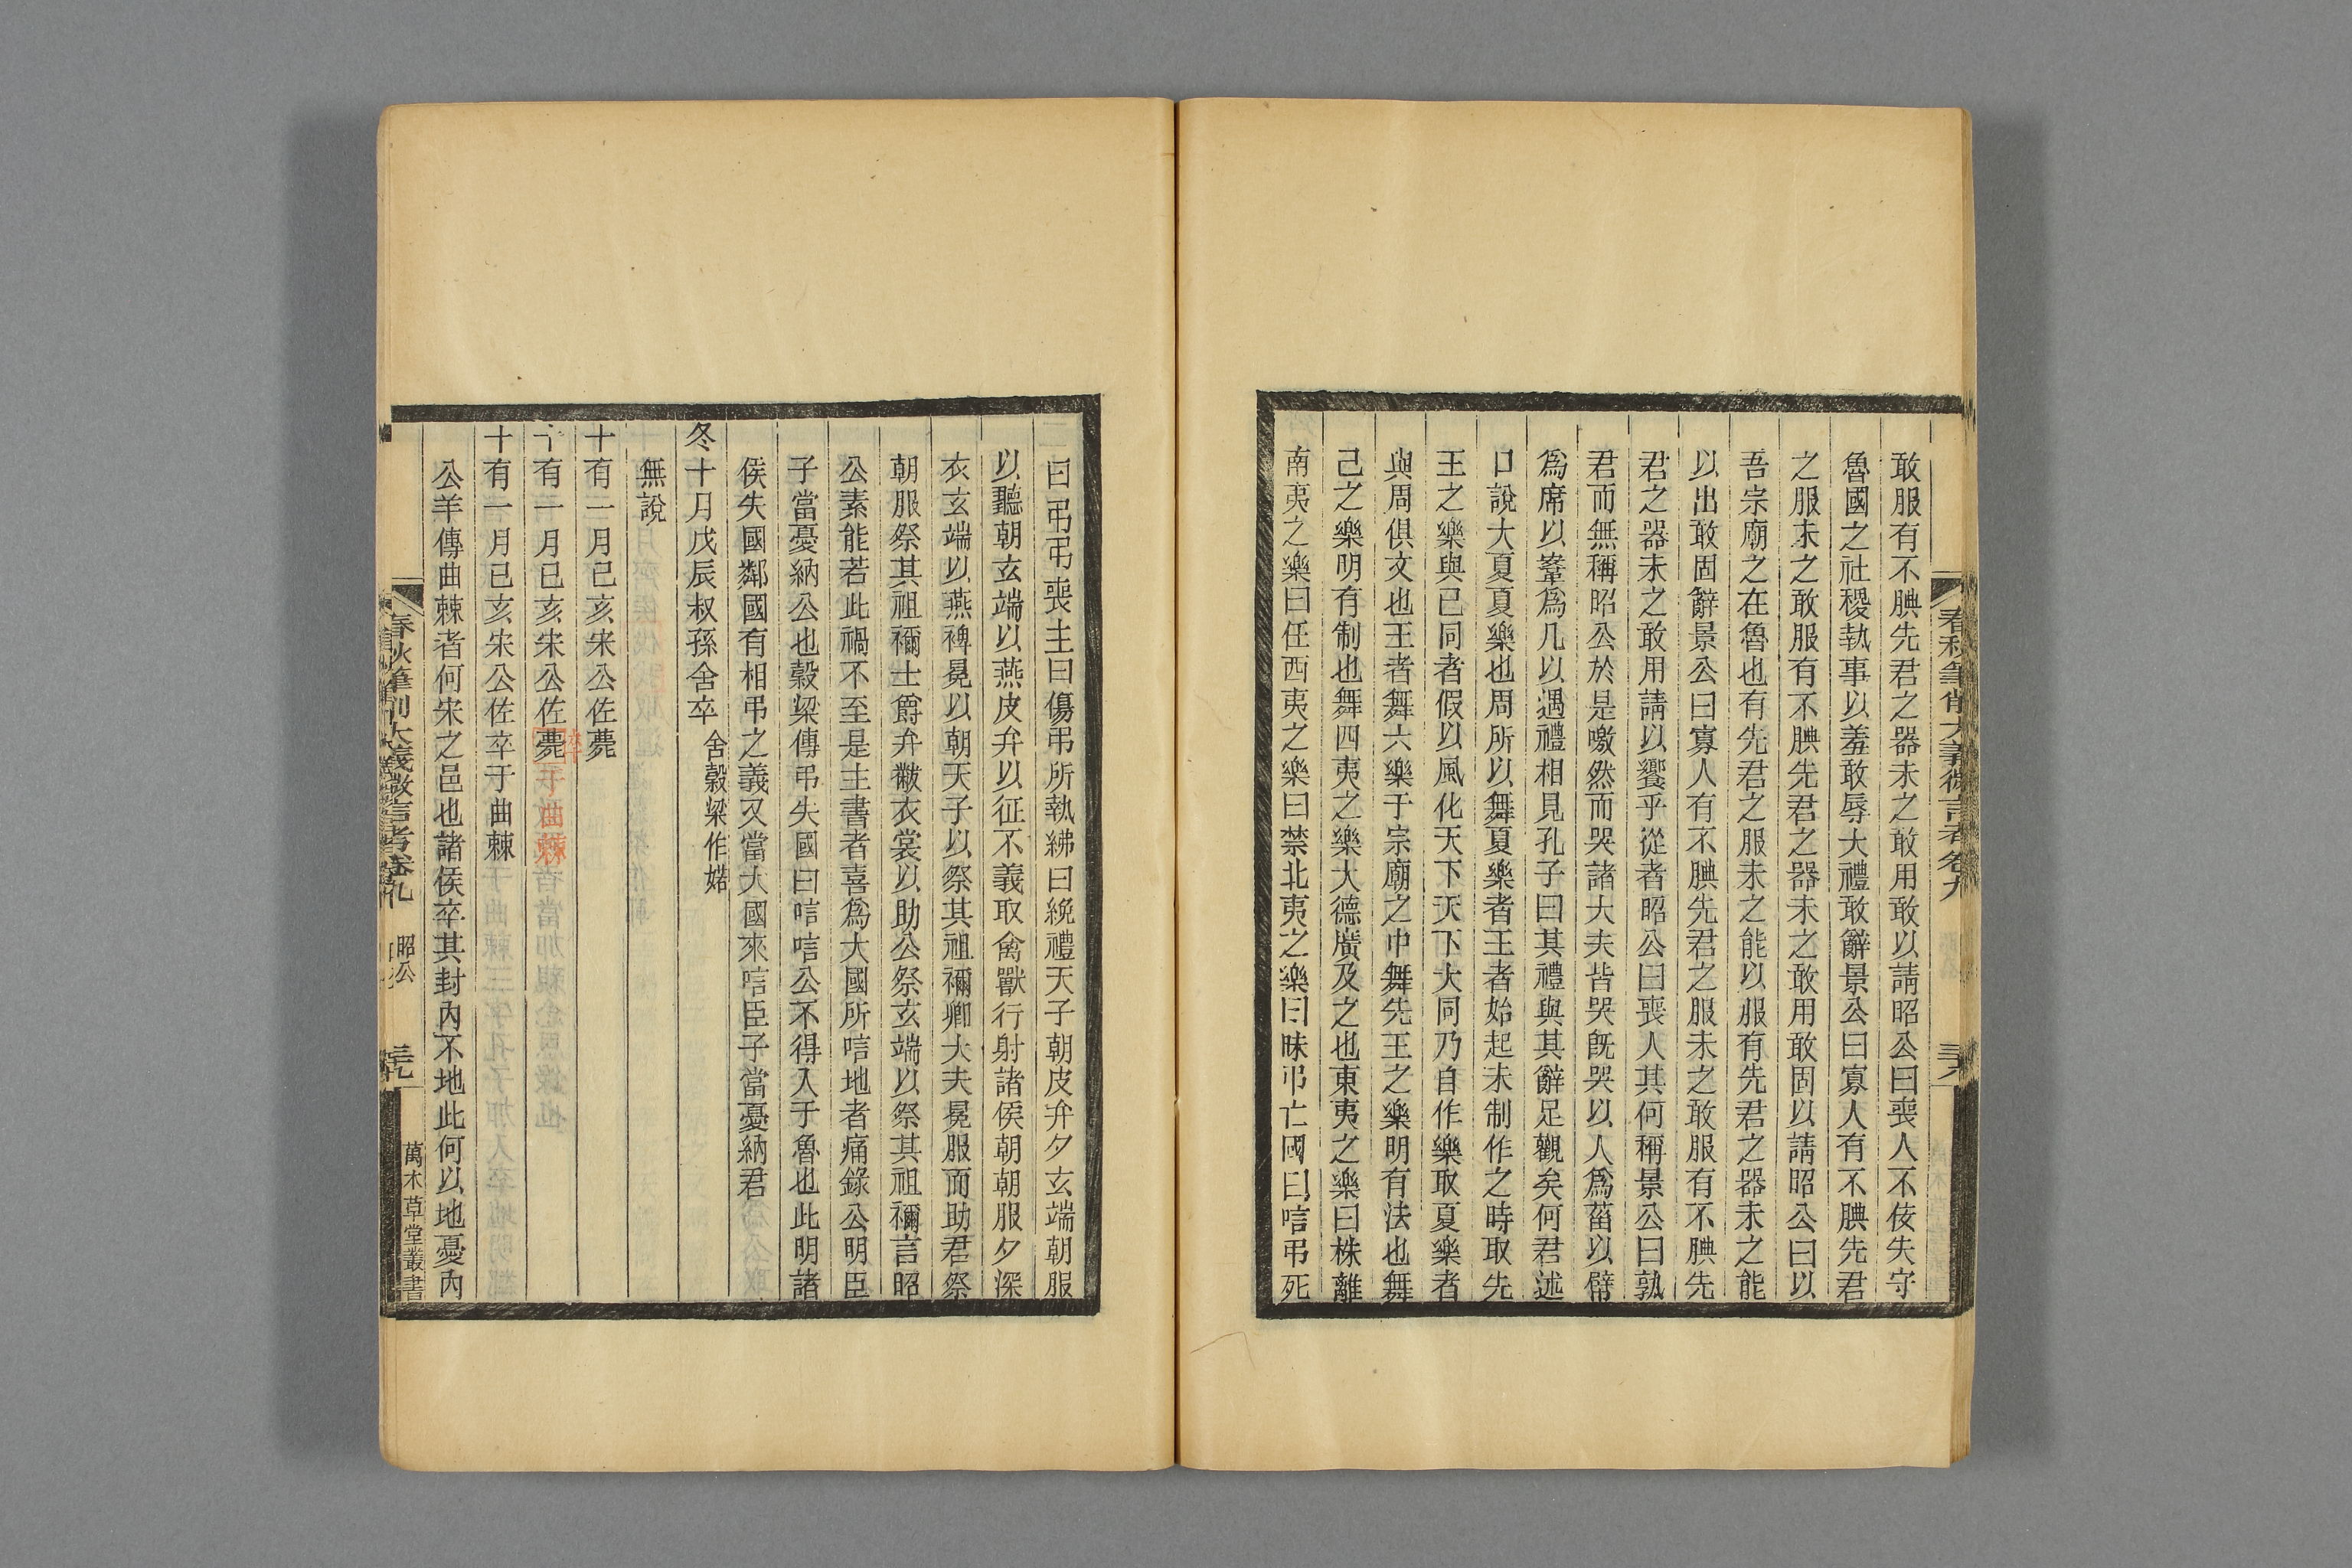 春秋筆削大義微言考卷九
三六
敢服有不腆先君之器未之敢用敢以請昭公曰喪人不佞失守
魯國之社稷執事以羞敢辱大禮敢辭景公曰寡人有不腆先君
之服未之敢服有不腆先君之器未之敢用敢固以請昭公曰以
吾宗廟之在魯也有先君之服未之能以服有先君之器未之能
以出敢固辭景公曰寡人有不腆先君之服未之敢服有不腆先
君之器未之敢用請以饗乎從者昭公曰喪人其何稱景公曰孰
君而無稱昭公於是噭然而哭諸大夫皆哭既哭以人爲菑以幦
爲席以鞌爲几以遇禮相見孔子曰其禮與其辭足觀矣何君述
口說大夏夏樂也周所以舞夏樂者王者始起未制作之時取先
王之樂與已同者假以風化天下天下大同乃自作樂取夏樂者
與周俱文也王者舞六樂于宗廟之中舞先王之樂明有法也舞
己之樂明有制也舞四夷之樂大德廣及之也東夷之樂曰株離
南夷之樂曰任西夷之樂曰禁北夷之樂曰昧弔亡國曰唁弔死
曰弔弔喪主曰傷弔所執紼曰絻禮天子朝皮弁夕玄端朝服
以聽朝玄端以燕皮弁以征不義取禽獸行射諸侯朝朝服夕深
衣玄端以燕裨冕以朝天子以祭其祖禰卿大夫冕服而助君祭
朝服祭其祖禰士爵弁黻衣裳以助公祭玄端以祭其祖禰言昭
公素能若此禍不至是主書者喜爲大國所唁地者痛錄公明臣
子當憂納公也穀梁傳弔失國曰唁唁公不得入于魯也此明諸
侯失國鄰國有相弔之義又當大國來唁臣子當憂納君
冬十月戊辰叔孫舍卒 舍穀梁作婼
無說
十有一月己亥宋公佐薨
十有一月己亥宋公佐薨卒于曲棘
十有一月己亥宋公佐卒于曲棘
公羊傳曲棘者何宋之邑也諸侯卒其封內不地此何以地憂內
春秋筆削大義微言考卷九
昭公
三七
萬木草堂叢書